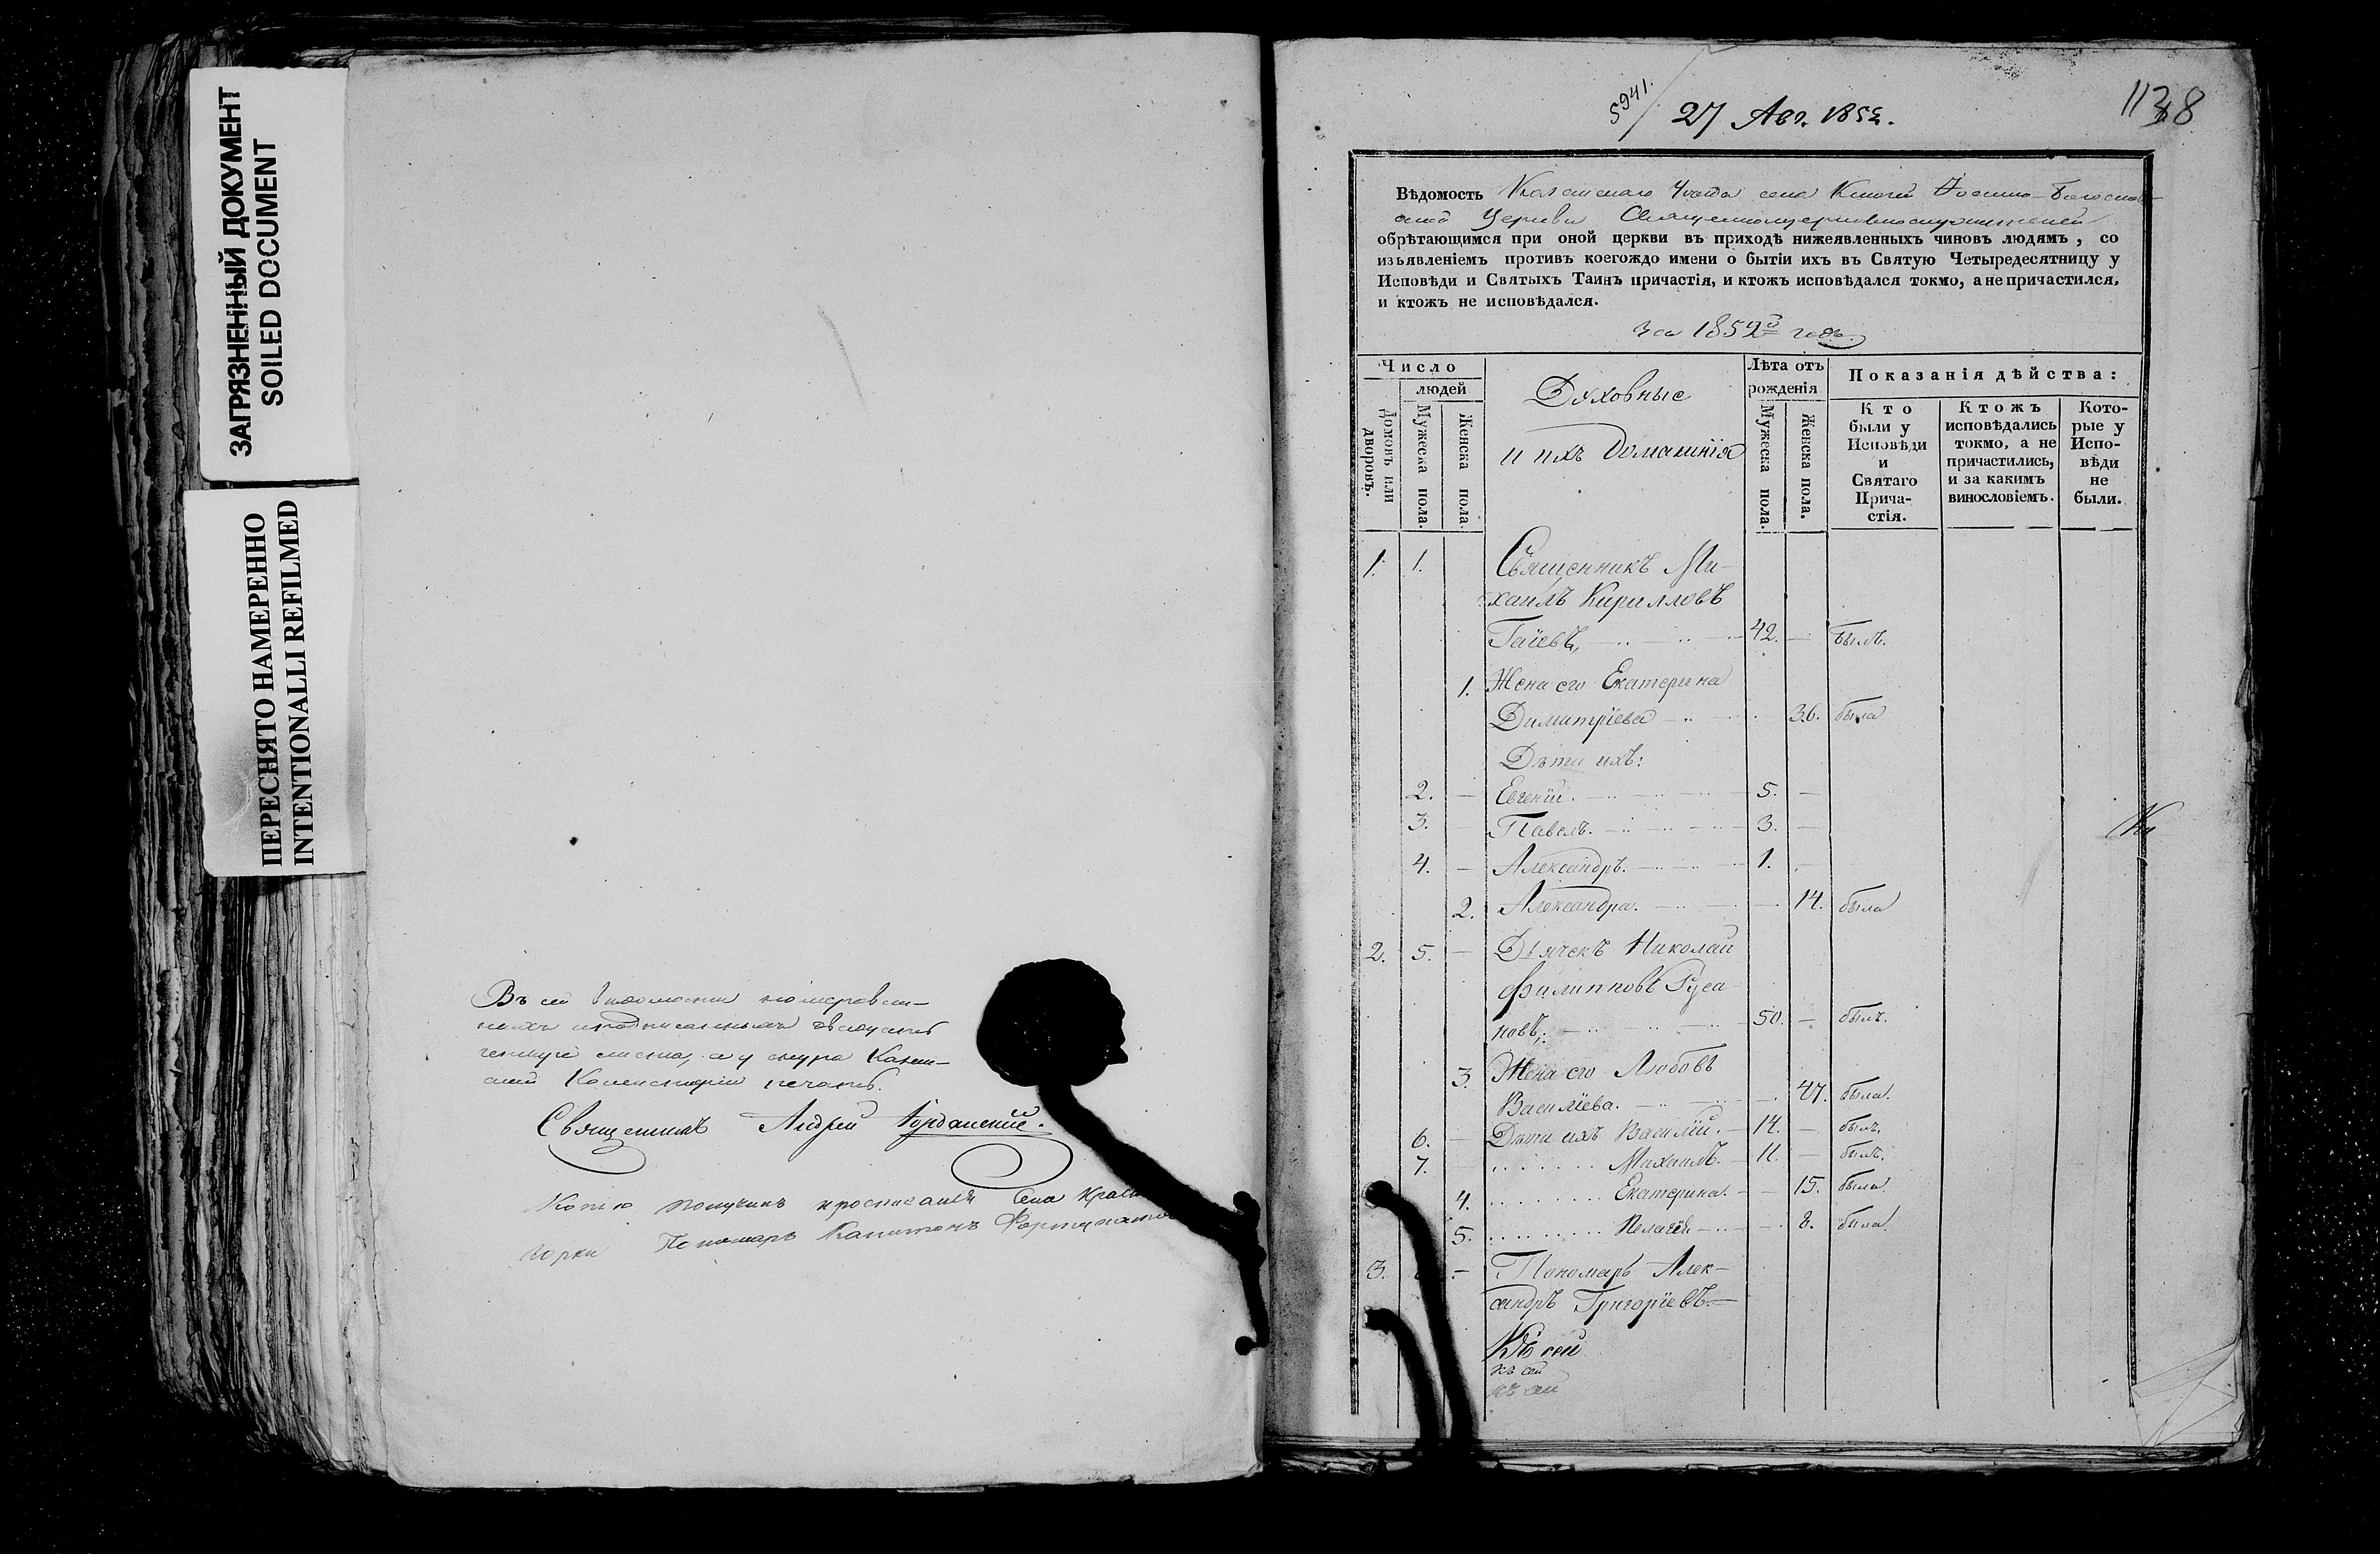 ЗАГРЯЗНЕННЫЙ ДОКУМЕНТ
SOILED DOCUMENT
ПЕРЕСНЯТО НАМЕРЕННО
INTENTIONALLI REFILMED
Въ сей
листа, а у шнура
печать.
Священникъ Андрей
Копію получилъ села
горки Пономарь Капитонъ
5941.
27 Авг. 1852.
1138
Вѣдомость уѣзда села
Церкви
обрѣтающимся при оной церкви въ приходѣ нижеявленныхъ чиновъ людямъ, со
изъявленіемъ противъ коегождо имени о бытіи ихъ въ Святую Четыредесятницу у
Исповѣди и Святыхъ Таинъ причастія, и ктожъ исповѣдался токмо, а не причастился,
и ктожъ не исповѣдался.
За 1852й годъ.
Число
людей
Домовъ или дворовъ.
Мужеска пола.
Женска пола.
Духовные
и ихъ Домашнія
Лѣта отъ рожденія
Мужеска пола.
Женска пола.
Показанія дѣйства:
Кто были у Исповѣди и Святаго Причастія.
Ктожъ исповѣдались токмо, а не причастились, и за какимъ винословіемъ.
Которые у Исповѣди не были.
1. 1. Священникъ Ми-
хаилъ Кирилловъ
Гаіевъ, 42. — былъ.
1. Жена его Екатерина
Димитріева 36. была
Дѣти ихъ:
2. — Евгеній. 5. —
3. — Павелъ. 3. —
4. — Александръ. 1. —
2. Александра. — 14. была
2. 5. — Дьячекъ Николай
Филипповъ Руса
новъ. 50. — былъ.
3. Жена его Любовь
Василіева. — 47. была.
6. — Дѣти ихъ Василій. 14. — былъ.
7. Михаилъ. 11. — былъ.
4. Екатерина. — 15. была.
5. Пелагея — 8. была.
3. — Пономарь Алек-
сандръ Григоріевъ. —
Къ сей
къ сей
къ сей